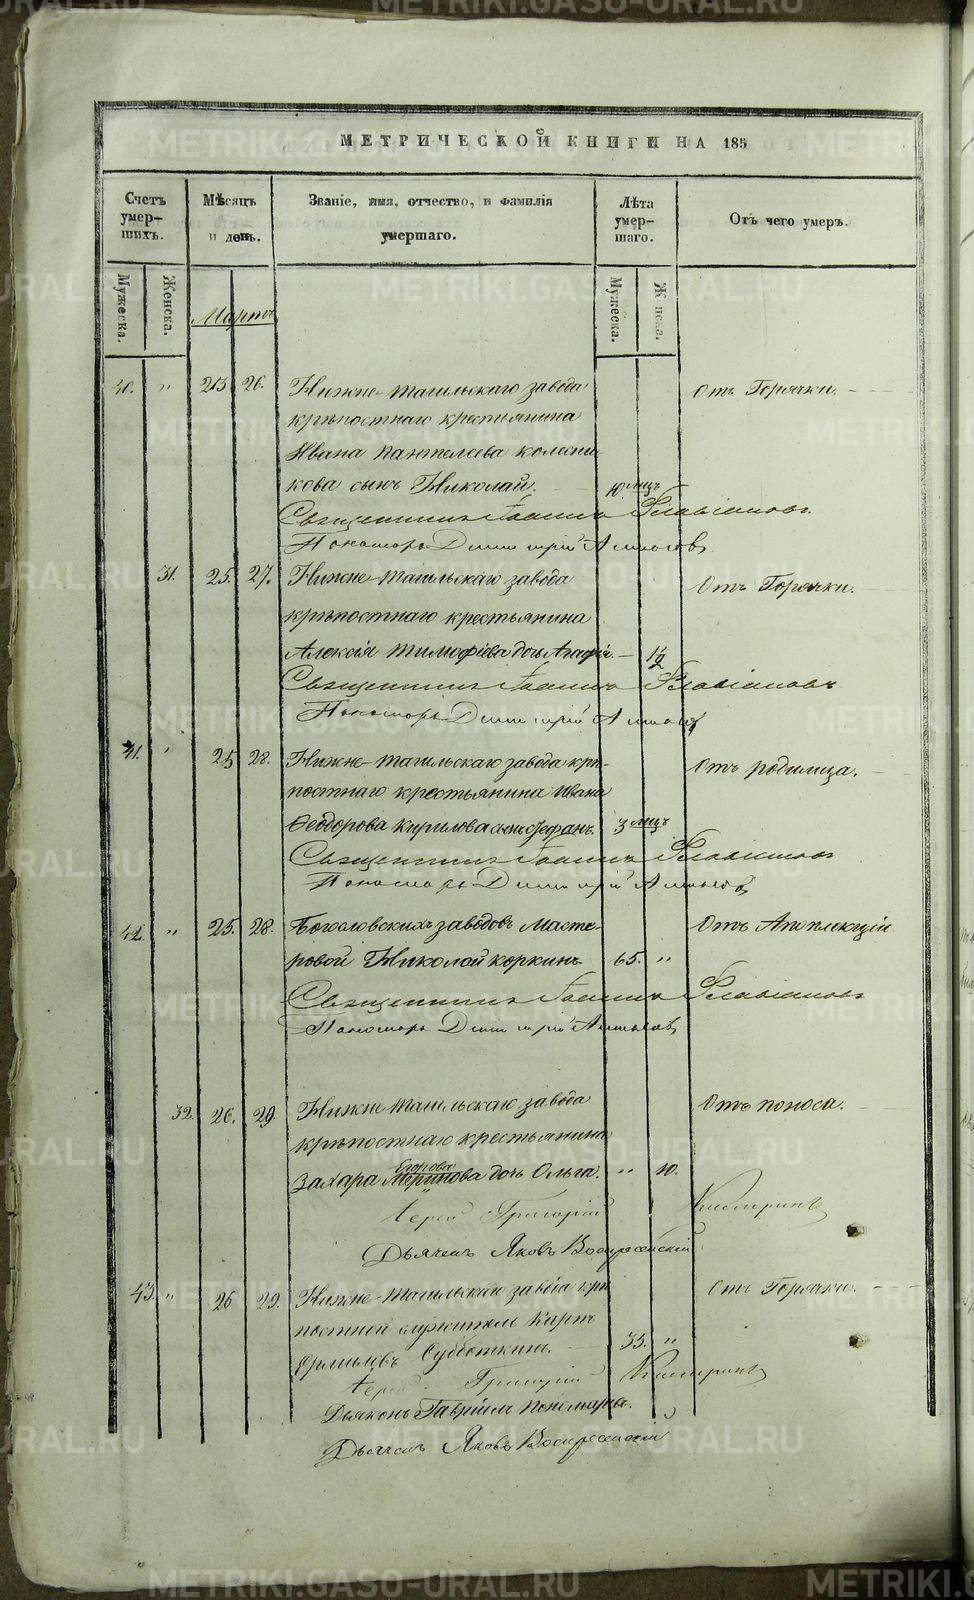 МЕТРИЧЕСКОЙ КНИГИ НА 185
Счетъ умер-шихъ.
Мѣсяцъ и день.
Званіе, имя, отчество, и фамилія умершаго.
Лѣта умер-шаго.
Отъ чего умеръ.
Мужеска. Женска. Мужеска. Женска.
Мартъ
40. " 25 26. Нижне-тагильскаго завода Отъ Горячки.
крѣпостнаго крестьянина
Ивана Пантелеева колпи-
кова сынъ Николай. 10 мцъ
Священникъ Іоаннъ Флавіановъ
Пономарь Димитрій
31. 25. 27. Нижне-тагильскаго завода Отъ Горячки.
крѣпостнаго крестьянина
Алексія Тимофіева дочь Агафія. 1/2
Священникъ Іоаннъ Флавіановъ
Пономарь Димитрій
41. " 25 28. Нижне-тагильскаго завода крѣ- Отъ родимца.
постнаго крестьянина Ивана
Ѳеодорова Кирилова сынъ Стефанъ. 3 мцъ
Священникъ Іоаннъ Флавіановъ
Пономарь Димитрій
42. " 25. 28. Богословскихъ заводовъ Масте- Отъ Апоплекціи
ровой Николай коркинъ 65. "
Священникъ Іоаннъ Флавіановъ
Пономарь Димитрій
32. 26. 29. Нижне тагильскаго завода Отъ поноса.
крѣпостнаго крестьянина
Егорова
Захара Меринова дочь Ольга. " 10.
Іерей Григорій
Дьячекъ Яковъ Воскресенскій
43. " 26 29. Нижне-тагильскаго завода крѣ Отъ Горячки.
постной служитель Карпъ
Ермиловъ Субботкинъ. 35. "
Іерей Григорій
Дьяконъ Гавріилъ Пономаревъ.
Дьячекъ Яковъ Воскресенскій
METRIKI.GASO-URAL.RU